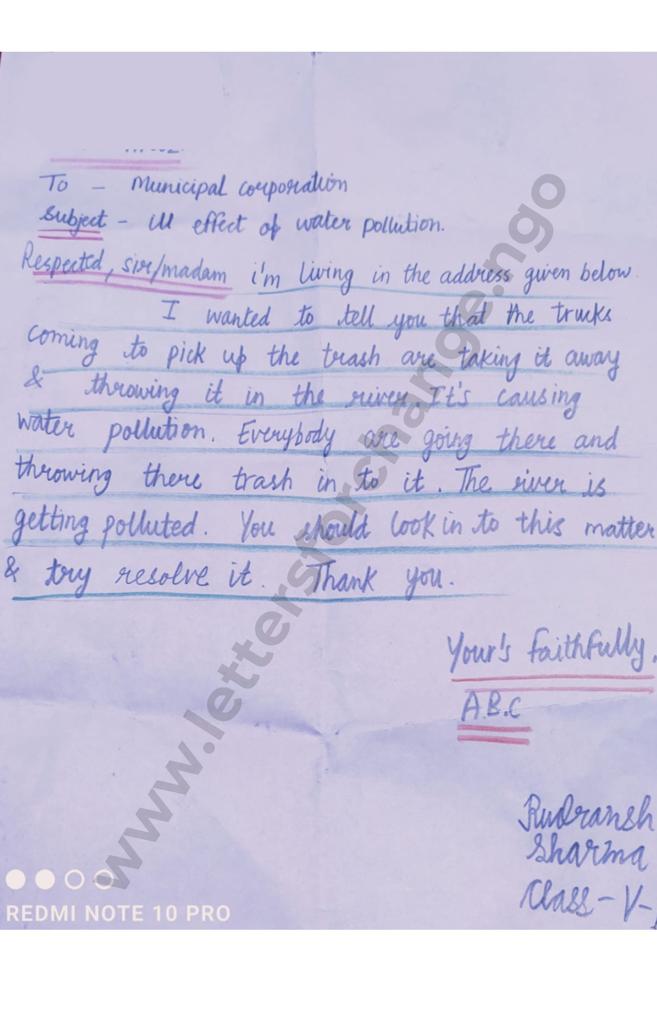 To - Municipal corporation
Subject - ill effect of water pollution.
Respected, sir/madam i'm living in the address given below.
I wanted to tell you that the trucks
coming to pick up the trash are taking it away
& throwing it in the river It's causing
water pollution. Everybody are going there and
throwing there trash in to it. The river is
getting polluted. You should look in to this matter
& try resolve it. Thank you.
Your's faithfully,
A.B.C
Rudransh
Sharma
Class - V -
www.lettersforchange.ngo
REDMI NOTE 10 PRO